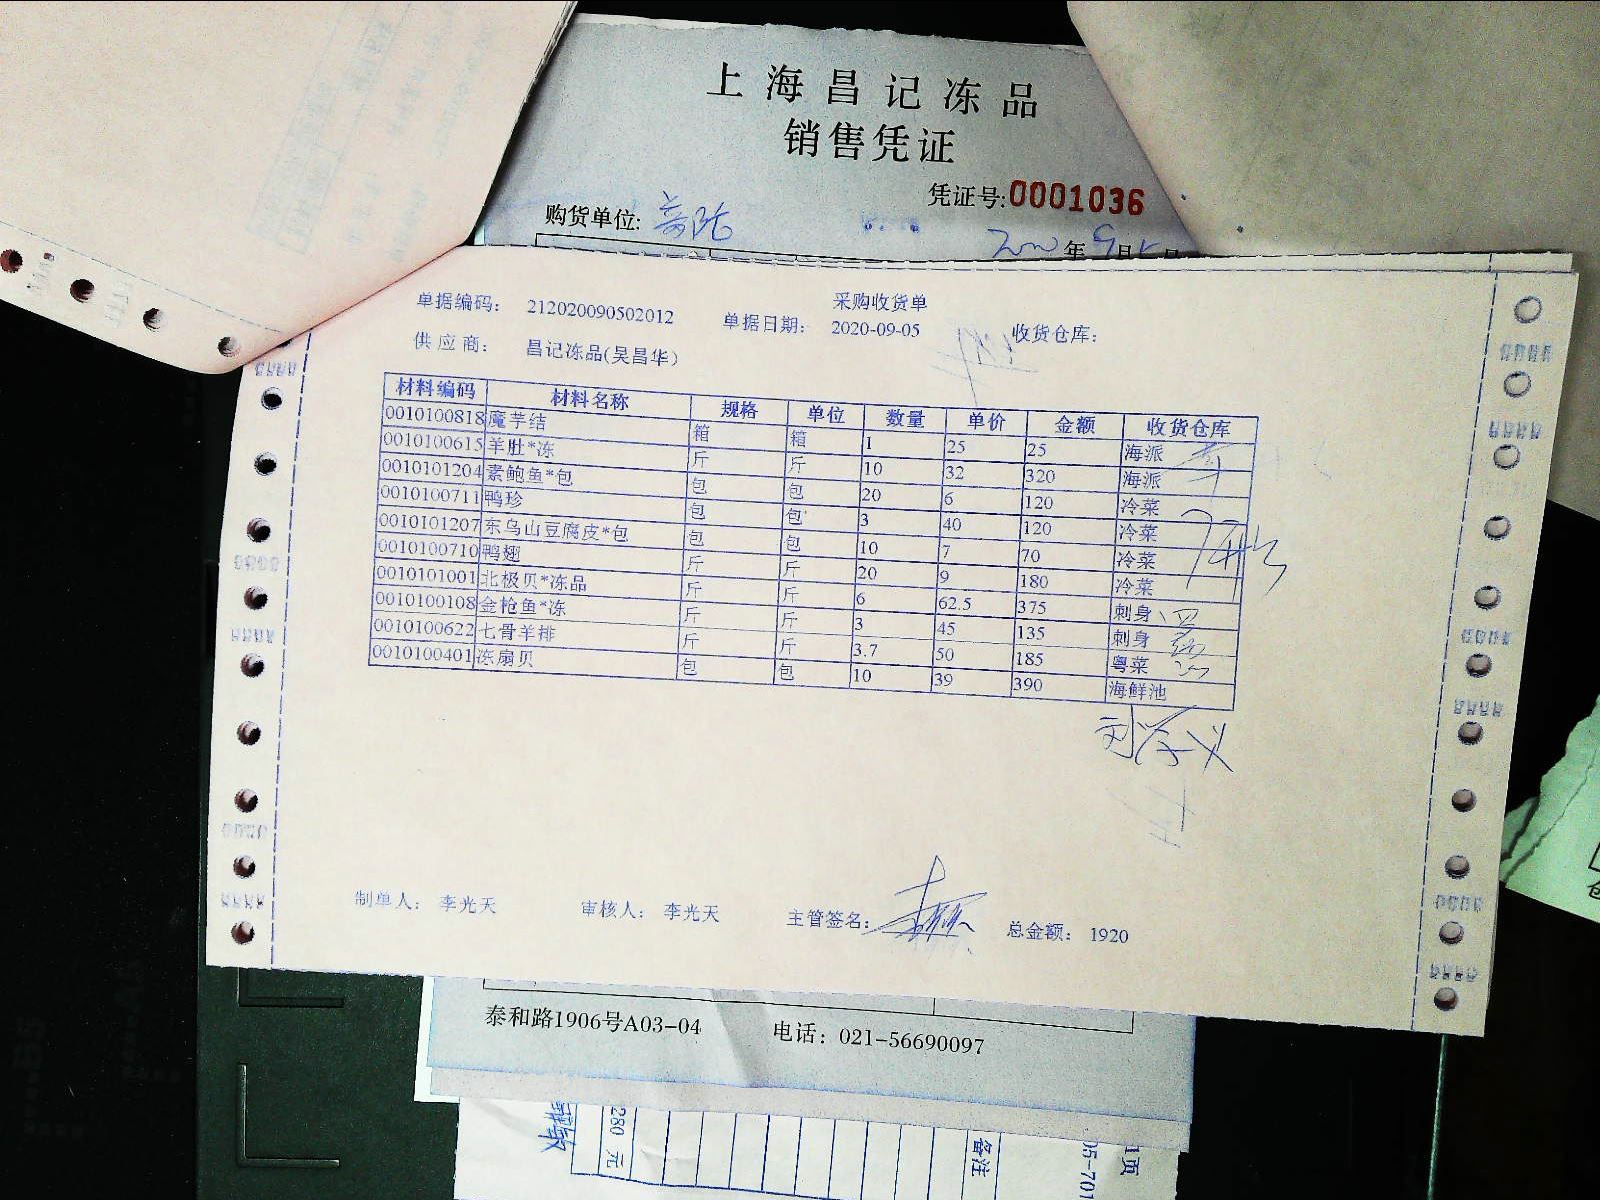 上海昌记冻品
销售凭证
凭证号:0001036
购货单位:
年9月 日
采购收货单
单据编码: 212020090502012 单据日期: 2020-09-05 收货仓库:
供应商: 昌记冻品(吴昌华)
材料编码 材料名称 规格 单位 数量 单价 金额 收货仓库
0010100818 魔芋结 箱 箱 1 25 25 海派
0010100615 羊肚*冻 斤 斤 10 32 320 海派
0010101204 素鲍鱼*包 包 包 20 6 120 冷菜
0010100711 鸭珍 包 包 3 40 120 冷菜
0010101207 东乌山豆腐皮*包 包 包 10 7 70 冷菜
0010100710 鸭翅 斤 斤 20 9 180 冷菜
0010101001 北极贝*冻品 斤 斤 6 62.5 375 刺身
0010100108 金枪鱼*冻 斤 斤 3 45 135 刺身
0010100622 七骨羊排 斤 斤 3.7 50 185 粤菜
0010100401 冻扇贝 包 包 10 39 390 海鲜池
制单人: 李光天 审核人: 李光天 主管签名: 总金额: 1920
泰和路1906号A03-04 电话: 021-56690097
280 元
备注
05-701
1页